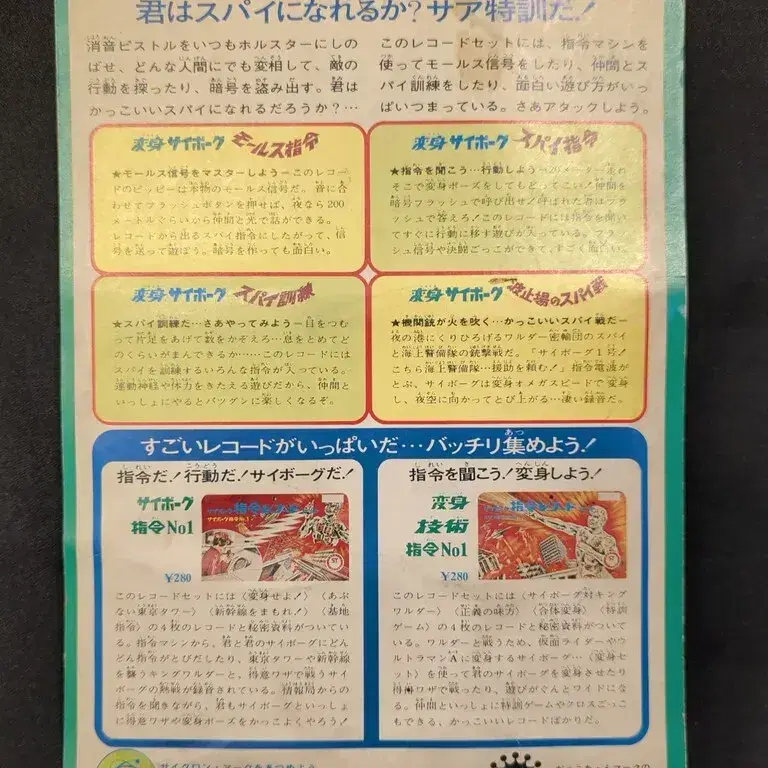 君はスパイになれるか?サア特訓だ!
消音ピストルをいつもホルスターにしの
ばせ、どんな人間にでも変相して、敵の
行動を探ったり、暗号を盗み出す。君は
かっこいいスパイになれるだろうか?…
このレコードセットには、指令マシンを
使ってモールス信号をしたり、仲間とス
パイ訓練をしたり、面白い遊び方がいっ
ぱいつまっている。さあアタックしよう。
変身サイボーグ モールス指令
★モールス信号をマスターしようーこのレコー
ドのピッピーは本物のモールス信号だ。音に合
わせてフラッシュボタンを押せば、夜なら200
メートルぐらいから仲間と光で話ができる。
レコードから出るスパイ指令にしたがって、信
号を送って遊ぼう。暗号を作っても面白い。
変身サイボーグ スパイ指令
★指令を聞こう…行動しようー20メーター走れ
そこで変身ポーズをしてもどってこい!仲間を
暗号フラッシュで呼び出せ!呼ばれた者はフラ
ッシュで答えろ!このレコードには指令を聞い
てすぐに行動に移す遊びが入っている。フラッ
シュ信号や決闘ごっこができて、すごく面白い。
変身サイボーグ スパイ訓練
★スパイ訓練だ…さあやってみようー目をつむ
って片足をあげて数をかぞえろ…息をとめてど
のくらいがまんできるか……このレコードには
スパイを訓練するいろんな指令が入っている。
運動神経や体力をきたえる遊びだから、仲間と
いっしょにやるとバツグンに楽しくなるぞ。
変身サイボーグ 波止場のスパイ戦
★機関銃が火を吹く…かっこいいスパイ戦だー
夜の港にくりひろげるワルダー密輸団のスパイ
と海上警備隊の銃撃戦だ。「サイボーグ1号!
こちら海上警備隊…援助を頼む!」指令電波が
とぶ、サイボーグは変身オメガスピードで変身
し、夜空に向かってとび上がる…凄い録音だ。
すごいレコードがいっぱいだ…バッチリ集めよう!
指令だ!行動だ!サイボーグだ!
サイボーグ
指令No1
¥280
このレコードセットには〈変身せよ!〉〈あぶ
ない東京タワー〉〈新幹線をまもれ!〉〈基地
指令〉の4枚のレコードと秘密資料がついてい
る。指令マシンから、君と君のサイボーグにどん
どん指令がとびだしたり、東京タワーや新幹線
を襲うキングワルダーと、得意ワザで戦うサイ
ボーグの熱戦が録音されている。情報局からの
指令を聞きながら、君もサイボーグといっしょ
に得意ワザや変身ポーズをかっこよくやろう!
指令を聞こう!変身しよう!
変身
技術
指令No1
¥280
このレコードセットには〈サイボーグ対キング
ワルダー〉〈正義の味方〉〈合体変身〉〈特訓
ゲーム〉の4枚のレコードと秘密資料がついて
いる。ワルダーと戦うため、仮面ライダーやウル
トラマンAに変身するサイボーグ…〈変身セッ
ト〉を使って君のサイボーグを変身させたり
得意ワザで戦ったり、遊びがぐんとワイドにな
る。仲間といっしょに特訓ゲームやクロスごっこ
もできる、かっこいいレコードばかりだ。